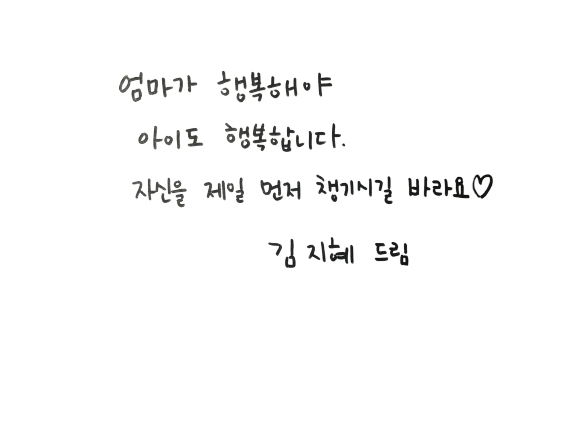 엄마가 행복해야
아이도 행복합니다.
자신을 제일 먼저 챙기시길 바라요♡
김지혜 드림